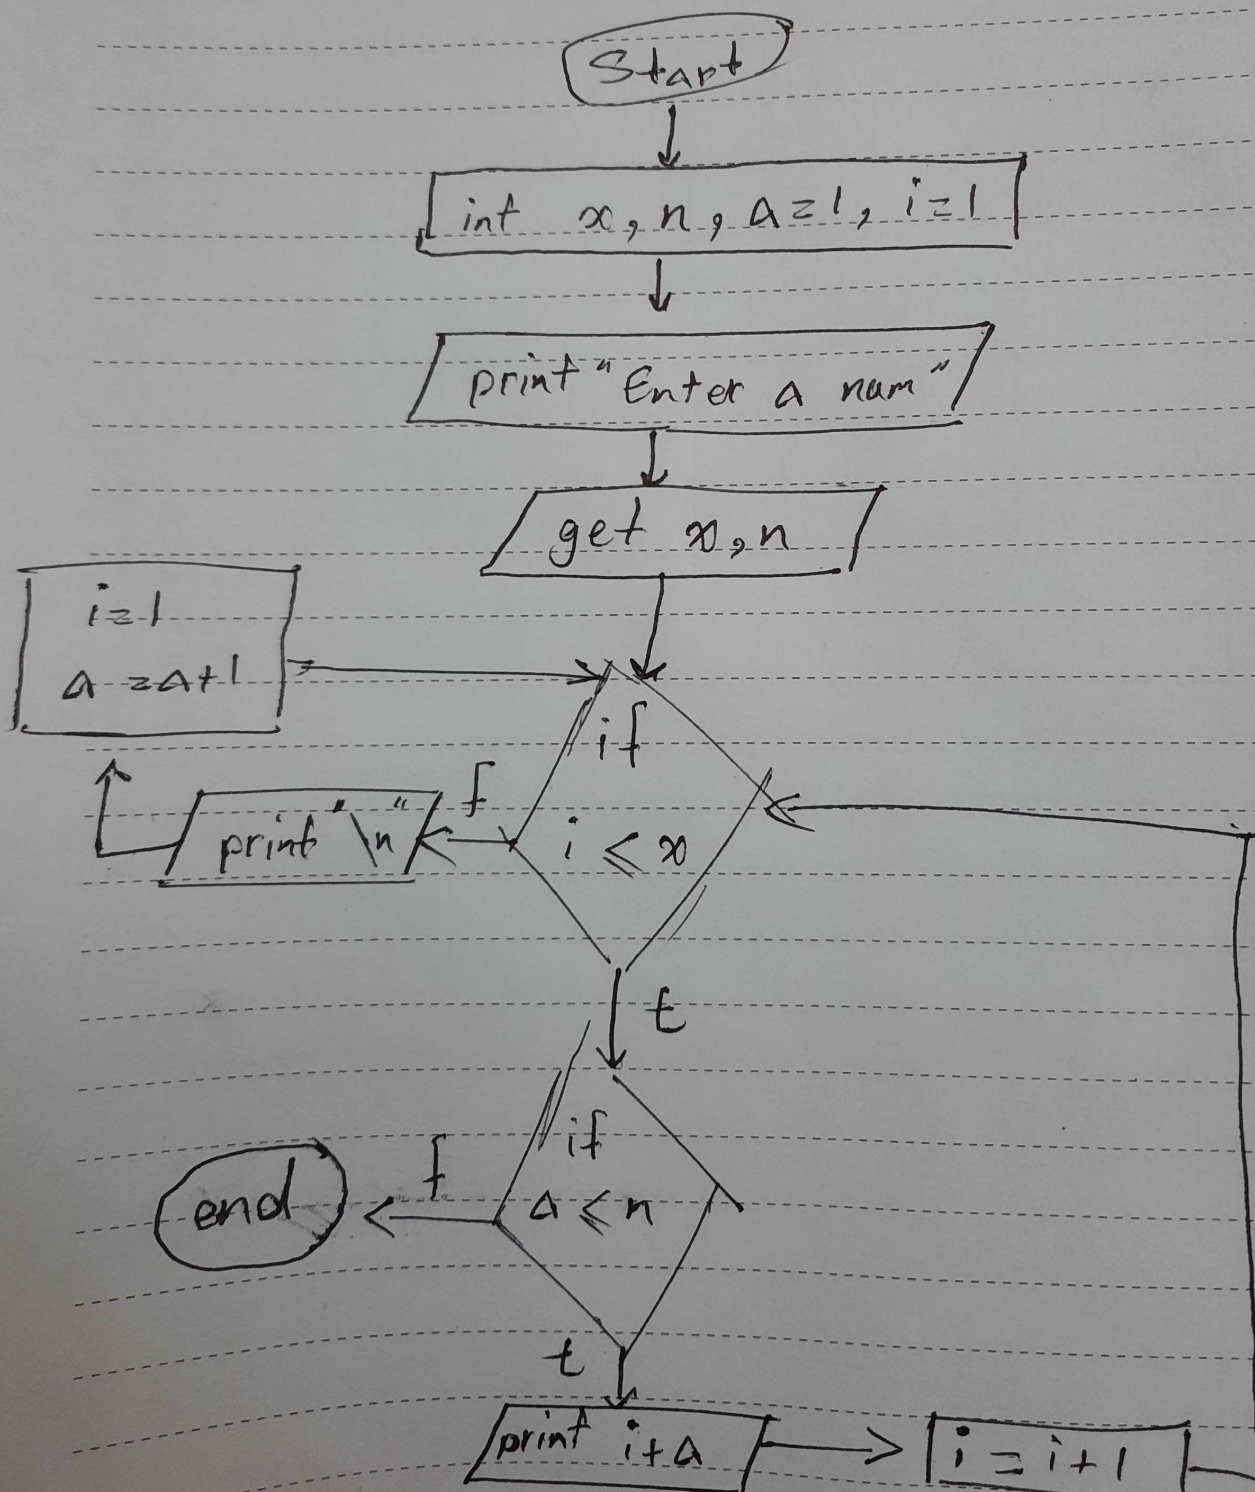 Start
int x, n, a=1, i=1
print "Enter a num"
get x, n
i=1
a=a+1
if
i ≤ x
f
print "\n"
t
if
a ≤ n
f
end
t
print i+a
i = i+1